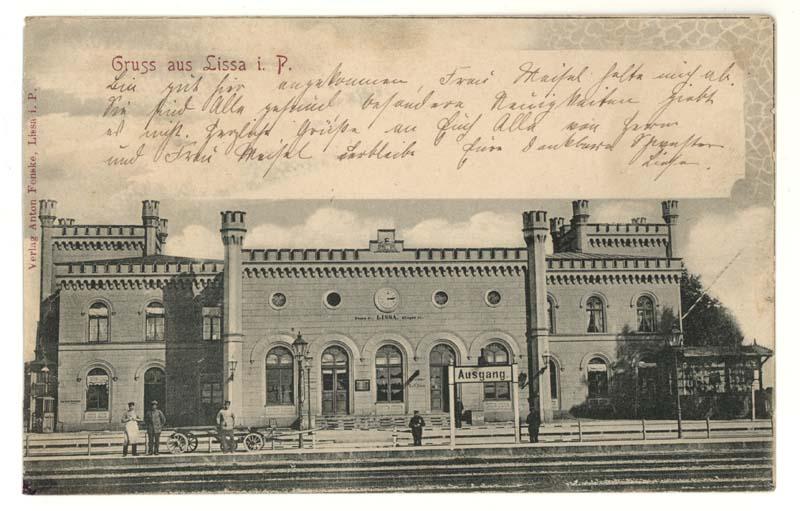 Gruss aus Lissa i. P.
Bin gut hier angekommen, Frau Meisel holte mich ab.
Sie sind Alle gesund besondere Neuigkeiten giebt
es nicht. Herzliche Grüße an Euch Alle von Herrn
und Frau Meisel verbleibe Eure dankbare Schwester
Verlag Anton Fenske, Lissa i. P.
LISSA.
Ausgang